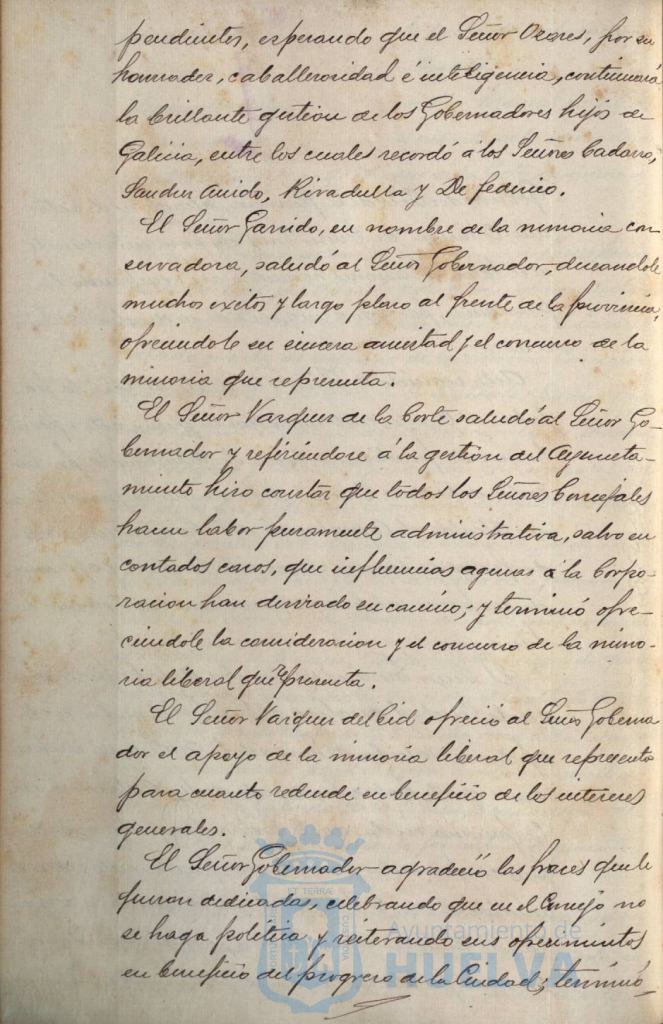 pendientes, esperando que el Señor Ozores, por su
honradez, caballerosidad é inteligencia, continuará
la brillante gestion de los Gobernadores hijos de
Galicia, entre los cuales recordó á los Señores Cadarso,
Sanchez Anido, Rivadulla y De Federico.
El Señor Garrido, en nombre de la minoria con-
servadora, saludó al Señor Gobernador, deseandole
muchos exitos y largo plazo al frente de la provincia,
ofreciendole su sincera amistad y el concurso de la
minoria que representa.
El Señor Vazquez de la Corte saludó al Señor Go-
bernador y refiriendose á la gestión del Ayunta-
miento hizo constar que todos los Señores Concejales
hacen labor puramente administrativa, salvo en
contados casos, que influencias agenas á la Corpo-
racion han desviado su camino; y terminó ofre-
ciendole la consideracion y el concurso de la mino-
ria liberal que representa.
El Señor Vazquez del Cid ofreció al Señor Goberna
dor el apoyo de la minoria liberal que representa
para cuanto redunde en beneficio de los intereses
generales.
El Señor Gobernador agradeció las frases que le
fueron dedicadas, celebrando que en el Concejo no
se haga politica y reiterando sus ofrecimientos
en beneficio del progreso de la Ciudad; terminó
Ayuntamiento de
HUELVA